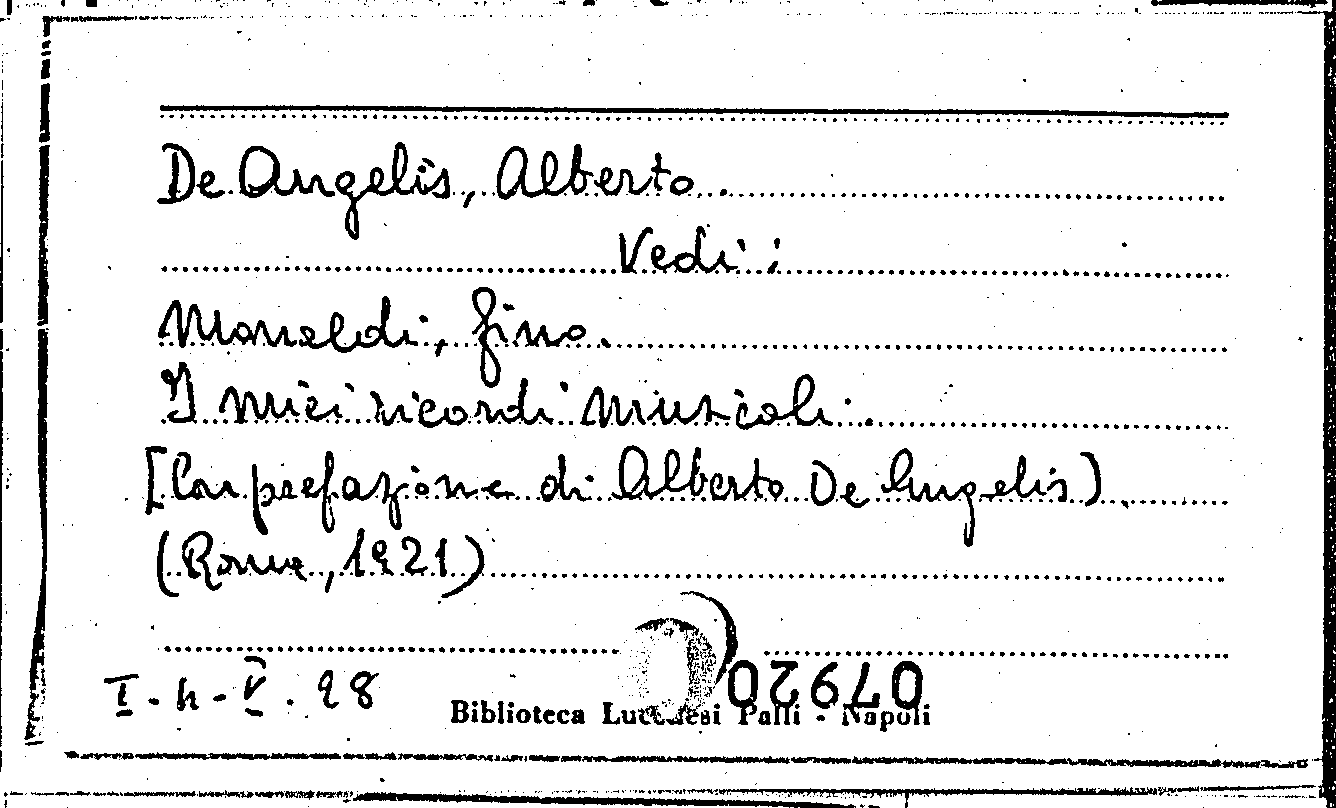 De Angelis, Alberto.
Vedi:
Monaldi, Gino.
I miei ricordi musicali.
[Con prefazione di Alberto De Angelis).
(Roma, 1921)
07920
I-h-V. 98
Biblioteca Lucchesi Palli - Napoli